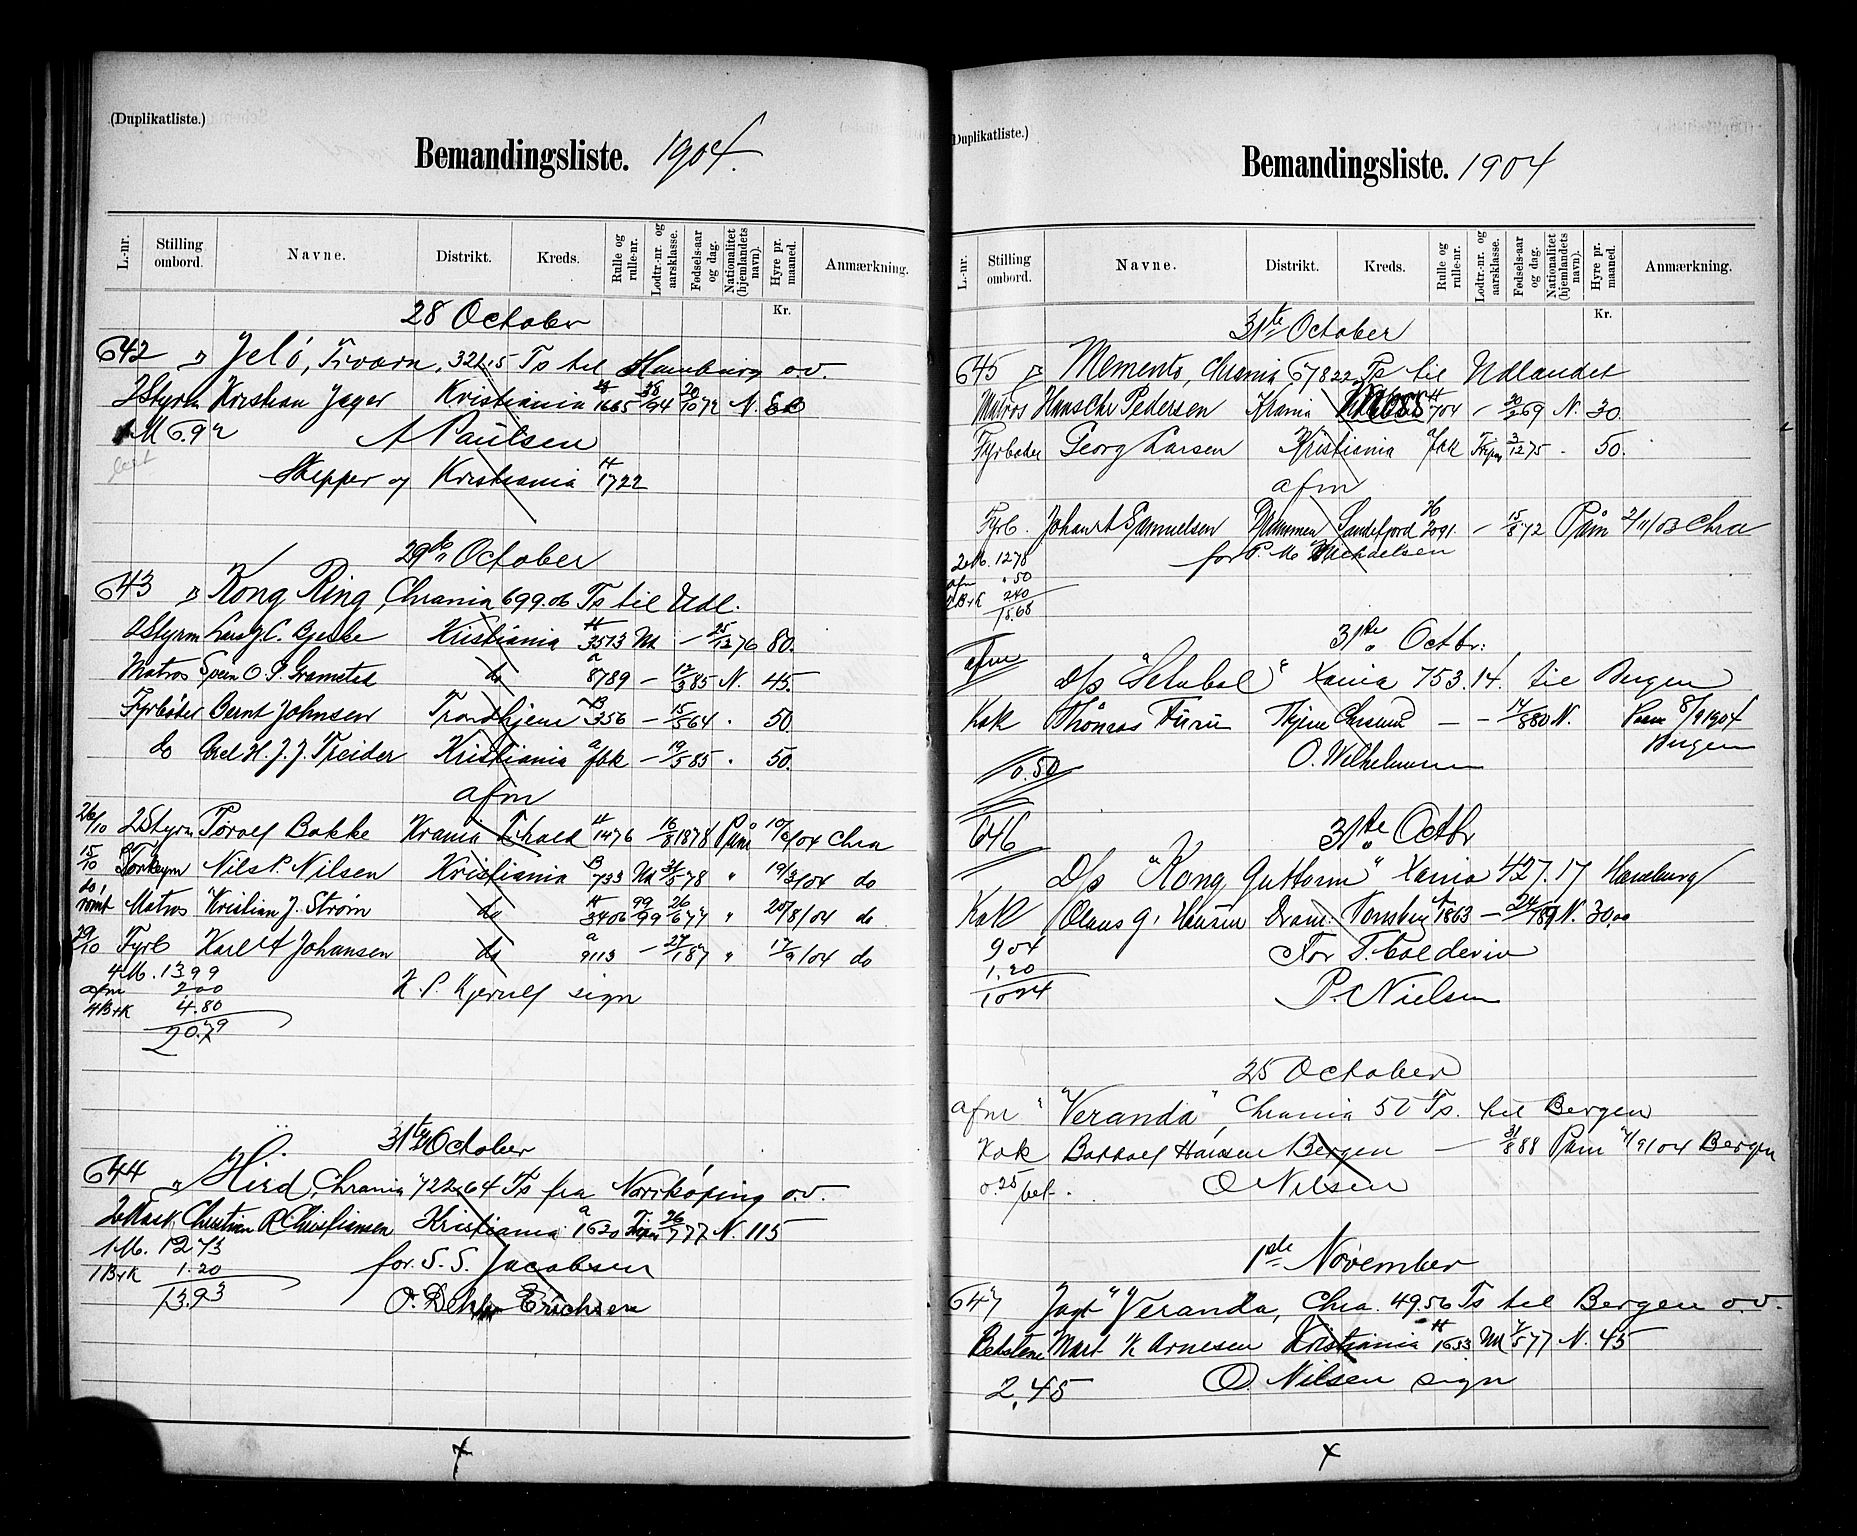 (Duplikatliste.)
Bemandingsliste. 1904.
L.-nr.
Stilling ombord.
Navne.
Distrikt.
Kreds.
Rulle og rulle-nr.
Lodtr.-nr. og aarsklasse.
Fødsels-aar og dag.
Nationalitet (hjemlandets navn).
Hyre pr. maaned.
Anmærkning.
Kr.
28 October
642 " Jelö, 321,5 Ts til Hamburg o.v.
2 Styrm Kristian Jager Kristiania 1665 94 20/10 72 N.
1 M 6.92 A Paulsen
Skepper og Kristiania 1722
29de October
643 " Kong Ring, Chrania 699.06 Ts til Udl.
Styrm C. Kristiania 3513 Ud – 25/12 76 80.
Matros Svein O. P. Gramstad do 8789 – 12/3 85 N. 45.
Fyrbøder Bernt Johnsen Trondhjem 356 – 15/5 64 " 50.
do Axel H. J. J. Treider Kristiania afbk – 19/5 85 " 50.
afm
26/10 2 Styrm Torolf Bakke Krania 1476 16/8 1878 Påm 10/6/04 Chra
15/10 Nils P. Nilsen Kristiania B 733 Ud 31/5 78 " 19/3/04 do
do, rømt Matros Kristian J. Strøm do 3406 99/99 26/6 77 " 25/8/04 do
29/10 Fyrb Karl A Johansen do a 9113 – 27/1 87 " 17/9/04 do
4 M. 13.99 K. P. Kjerulf sign
afm 200
4 B+K 4.80
20.79
31te October
644 " Hird, Chrania 722.64 Ts fra Norrköping o.v.
2 Mask. Christian R Christiansen Kristiania a 1620 26/7 77 N. 115
1 M. 12.73 for S. S. Jacobsen
1 B+K 1.20
13.93 O. Erichsen
(Duplikatliste.)
Bemandingsliste. 1904
L.-nr.
Stilling ombord.
Navne.
Distrikt.
Kreds.
Rulle og rulle-nr.
Lodtr.-nr. og aarsklasse.
Fødsels-aar og dag.
Nationalitet (hjemlandets navn).
Hyre pr. maaned.
Anmærkning.
Kr.
31te October
645 " Memento, Chrania, 678.22 Ts til Udlandet
Matros Hans Chr Pedersen Krania 704 – 20/2 69 N. 30
Fyrbøder Georg Larsen Kristiania afbk 3/12 75 " 50.
afm
Fyrb. Johan A Samuelsen Drammen Sandefjord 2091 – 15/8 72 Påm 2/11/03 Chra
2 M. 1278 for P. M. Michaelsen
afm " 50
2 B+K 240
15.68
afm 31te Octbr:
D/s "Setubal" Xania 753.14. til Bergen
Kok Thomas Furu Thjem Chrsund – – 14/8 80 N. Paam 8/9 1904 Bergen
0.50 O. Wilhelmsen
646 31te Octbr
D/s "Kong Guttorm" Xania 427.17 Hamburg
Kok Olaus G. Hansen Dram. Tønsberg 1863 – 24/1 89 N. 30,00
904 For T. Calderin
1.20 P. Nielsen
1024
25 October
afm "Veranda", Chrania 50 Ts. til Bergen
Kok Botholf Hansen Bergen – 31/8 88 Påm /9/04 Bergen
0.25 bet. O Nilsen
1ste November
647 Jagt "Veranda, Chra. 49.56 Ts til Bergen o.v.
Bestem Mart K Arnesen Kristiania 1653 Ud 7/5 77 N. 45
2,45 O Nilsen sign